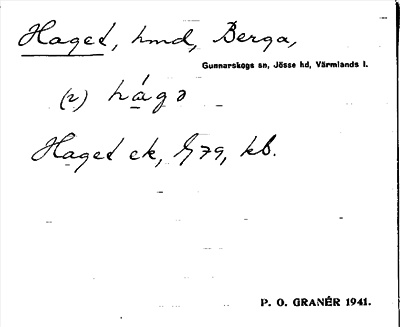 Haget, hmd, Berga,
Gunnarskogs sn, Jösse hd, Värmlands l.
(2) hágə
Haget ek, 79, kb.
P. O. GRANÉR 1941.